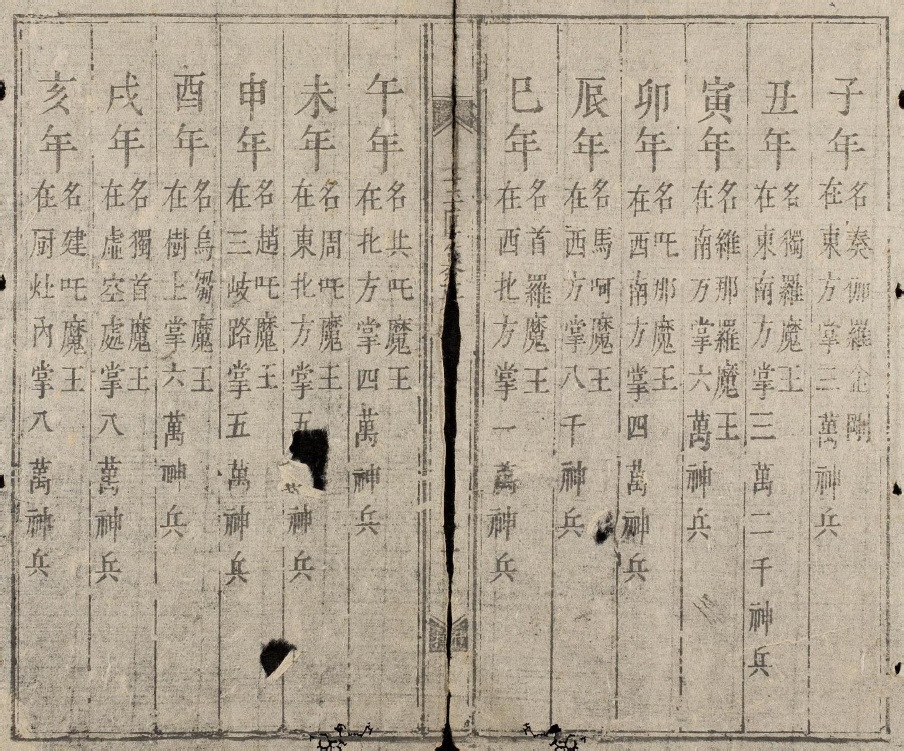 子年
名奏伽羅金剛
在東方掌三萬神兵
丑年
名獨羅魔王
在東南方掌三萬二千神兵
寅年
名維那羅魔王
在南方掌六萬神兵
卯年
名吒那魔王
在西南方掌四萬神兵
辰年
名馬呵魔王
在西方掌八千神兵
巳年
名首羅魔王
在西北方掌一萬神兵
午年
名共吒魔王
在北方掌四萬神兵
未年
名周吒魔王
在東北方掌五神兵
申年
名趙吒魔王
在三岐路掌五萬神兵
酉年
名烏魔王
在樹上掌六萬神兵
戌年
名獨首魔王
在虛空處掌八萬神兵
亥年
名建吒魔王
在厨灶內掌八萬神兵